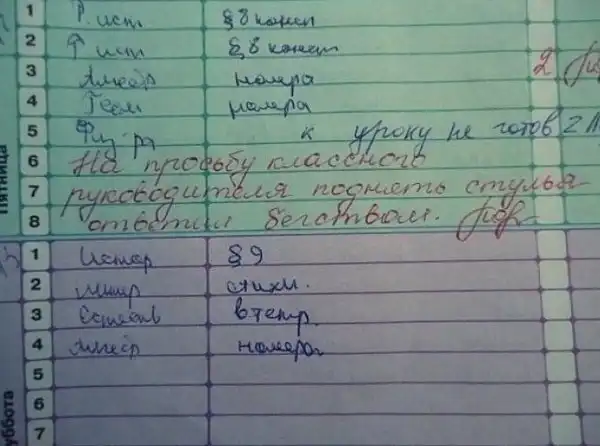 1 Р. ист § 8 консп
2 Р ист § 8 консп
3 Алгебр номера 2
4 Геом номера
5 Физ-ра к уроку не готов 2
6 На просьбу классного
7 руководителя поднять стулья
8 ответил бегством.
Пятница
1 Истор § 9
2 литр стихи.
3 Естеств в тетр.
4 Алгебр номера
5
6
7
уббота